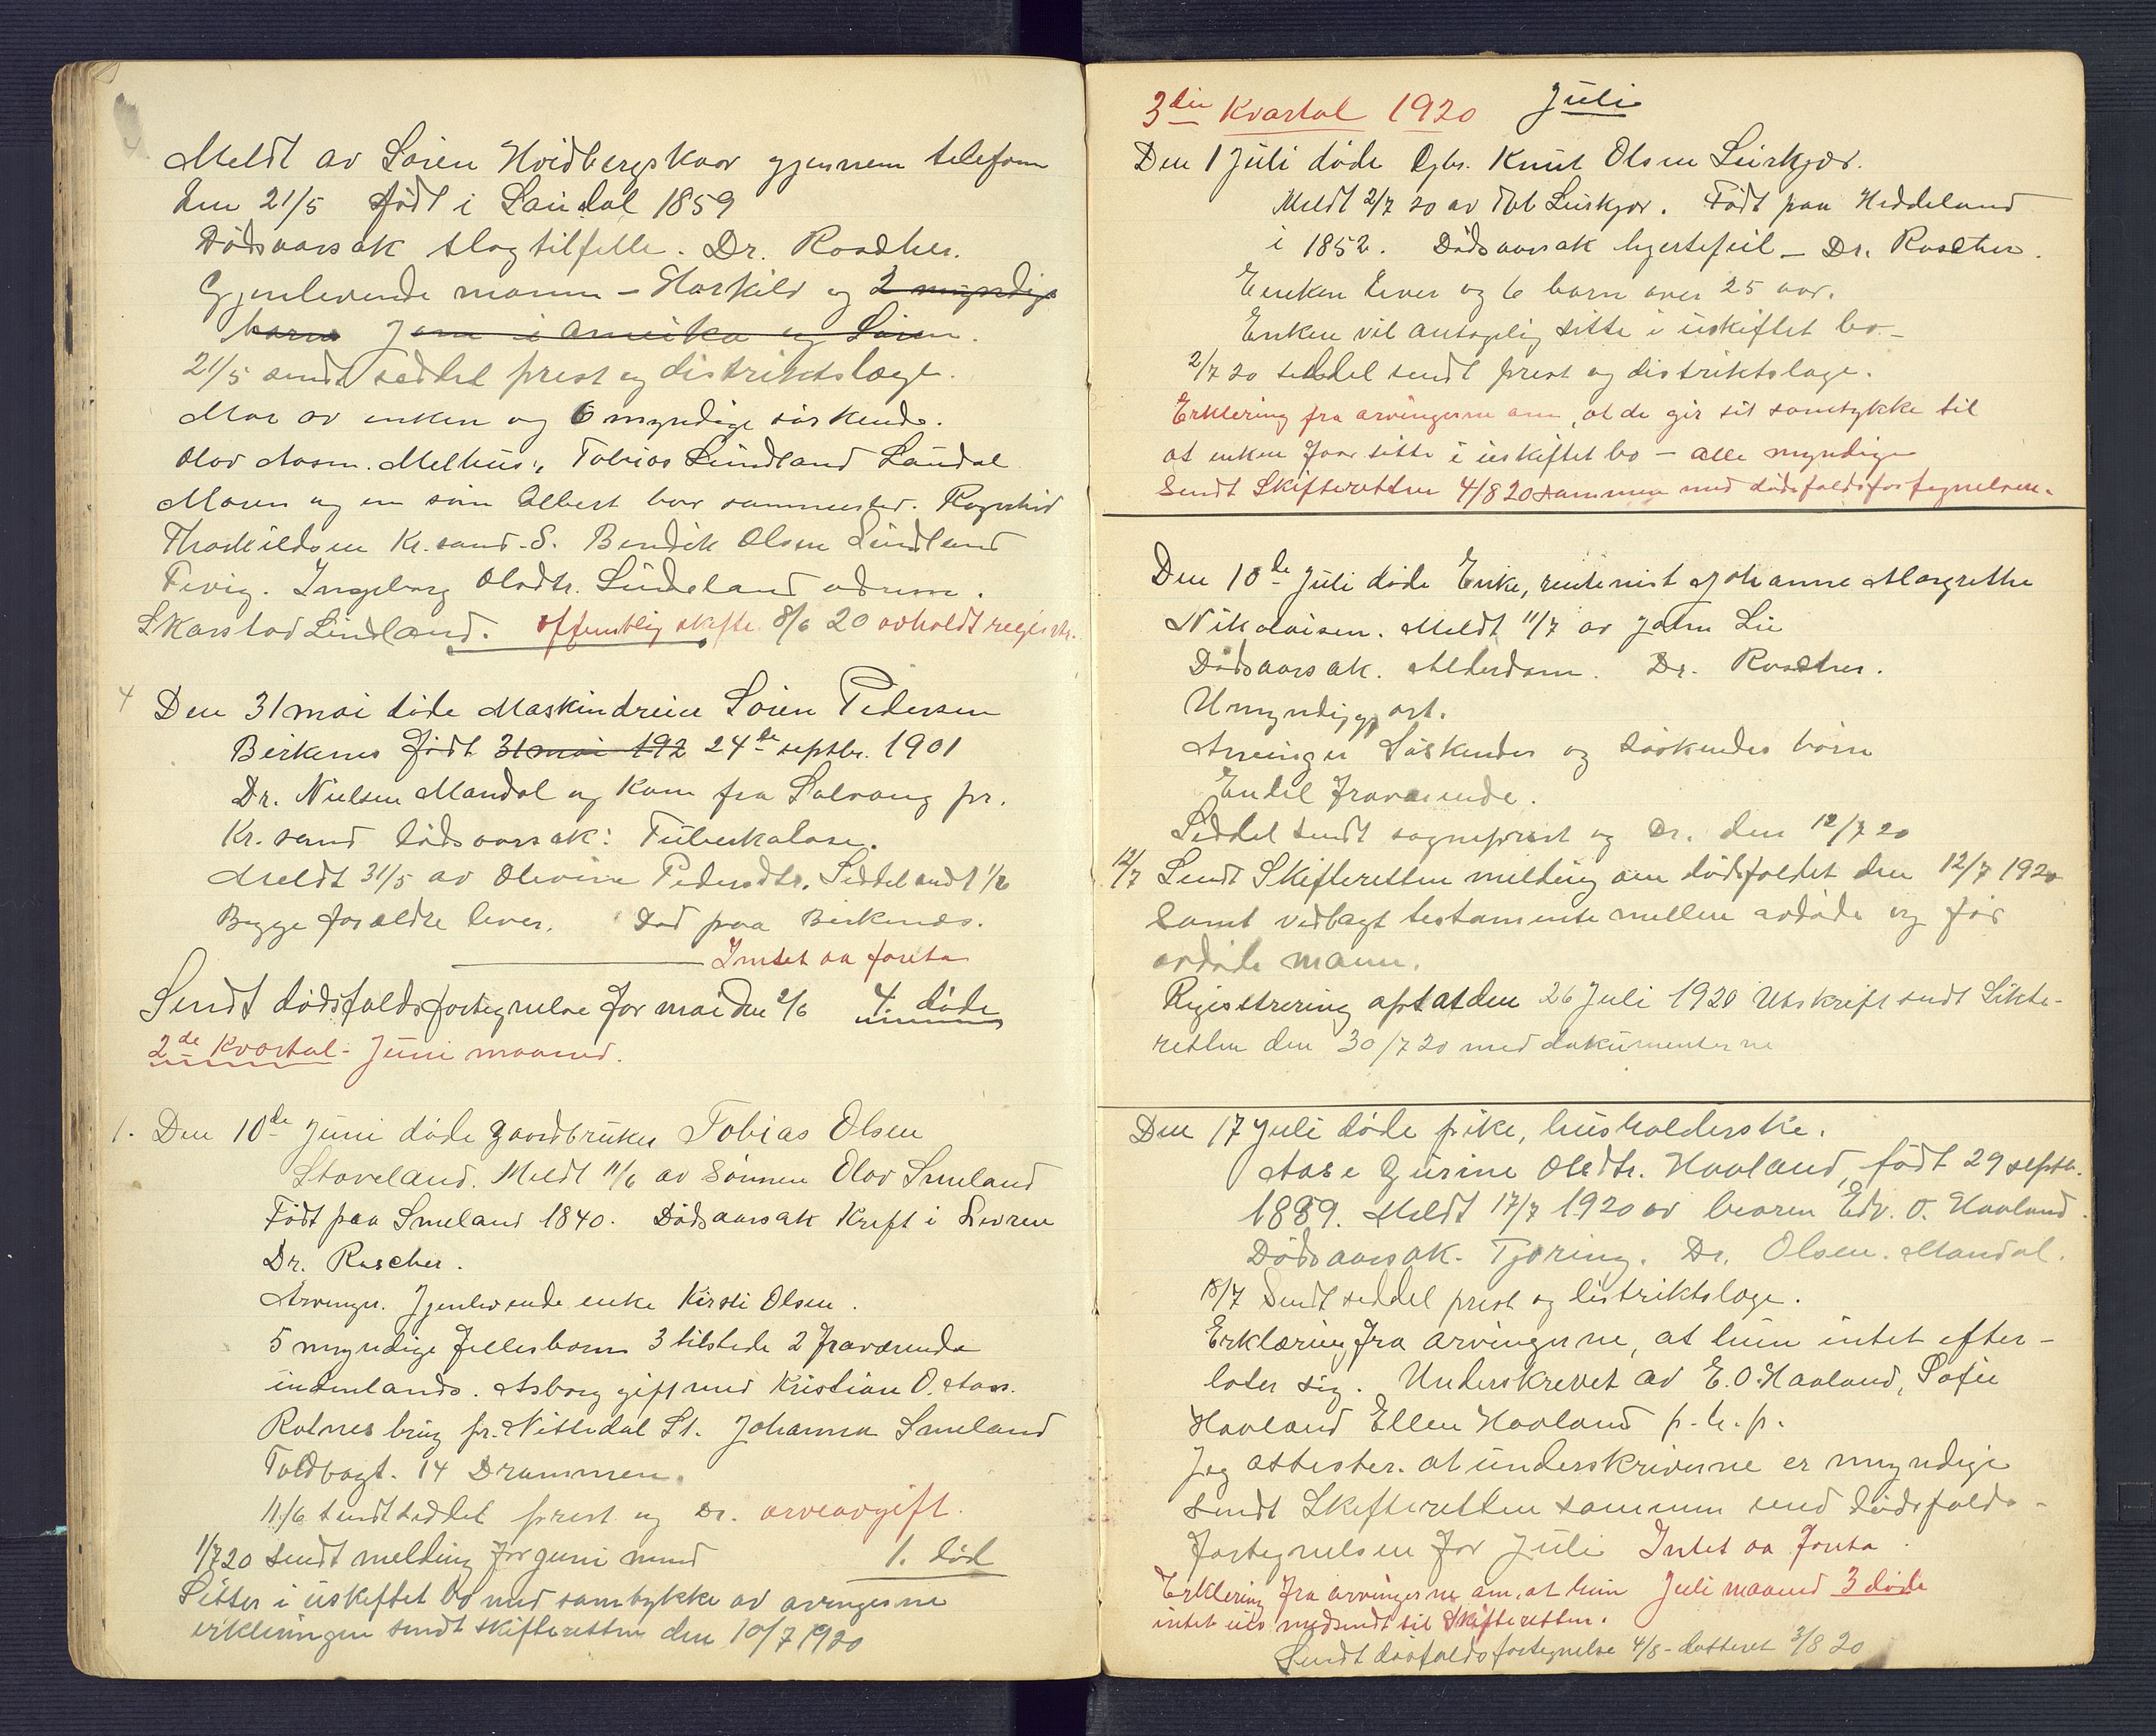 Meldt av Sören Hvidbergskaar gjennem telefon
den 21/5 Født i Laudal 1859
Dödsaarsak slagtilfelle. Dr. Roscher.
Gjenlevende mann - Harkild og 2 myndige
barn Jom i Amerika og Sören.
21/5 sendt seddel prest og distriktslæge.
Mor av enken og 6 myndige söskende.
Olav Aasm. Melhus, Tobias Lindland Laudal
Maren og en sön Albert bor sammested. Ragnhild
Thorkildsen Kr.sand. S. Bendik Olsen Lindland
Fevig. Ingeborg Olsdtr. Lindeland
Skarstad Lindland. offentlig skifte 8/6 20 avholdt registr.
4 Den 31 mai döde Maskindreier Sören Pedersen
Birkenes Født 31 mai 192 24de septbr. 1901
Dr. Nielsen Mandal og kom fra Solvang pr.
Kr.sand dödsaarsak: Tuberkulose.
Meldt 31/5 av Olevine Pedersdtr. Seddel sendt 1/6
Begge forældre lever. Död paa Birkenes.
Intet aa foreta
Sendt dödsfaldsfortegnelse for mai den 2/6 4 döde
2de Kvartal - Juni maaned.
1. Den 10de Juni döde gaardbruker Tobias Olsen
Stoveland. Meldt 11/6 av sönnen Olav Smeland
Födt paa Smeland 1840. Dödsaarsak Kreft i Leveren
Dr. Roscher.
Arvinger. Gjenlevende enke Kirsti Olsen.
5 myndige fellesbarn 3 tilstede 2 fraværende
indenlands. Asborg gift med Kristian O. Aas.
Rotnes brug pr. Nittedal St. Johanna Smeland
Toldbogt. 14 Drammen.
11/6 sendt seddel prest og Dr. arveavgift.
1/7 20 sendt melding for juni mnd 1. död
Sitter i uskiftet bo med samtykke av arvingerne
erkleringen sendt skifteretten den 10/7 1920
3die Kvartal 1920 Juli
Den 1 Juli döde Gbr. Knut Olsen Leirkjær.
Meldt 2/7 20 av Leirkjær. Födt paa Heddeland
i 1852. Dödsaarsak hjertefeil - Dr. Roscher.
Enken lever og 6 barn over 25 aar.
Enken vil antagelig sitte i uskiftet bo -
2/7 20 seddel sendt prest og distriktslæge.
Erklering fra arvingerne om, at de gir sit samtykke til
at enken faar sitte i uskiftet bo - alle myndige
Sendt Skifteretten 4/8 20 sammen med dödsfaldsfortegnelsen.
Den 10de Juli döde Enke, rentenist Johanne Margrethe
Nikolaisen. Meldt 11/7 av John Lie
Dödsaarsak. Alderdom. Dr. Roscher.
Umyndiggjort.
Arvinger Söskender og söskendes börn
Endel fraværende.
Seddel sendt sogneprest og Dr. den 12/7 20
12/7 Sendt Skifteretten melding om dödsfaldet den 12/7 1920
Samt vedlagt testamente mellem avdöde og för
avdöde mann.
Registrering optat den 26 Juli 1920 Utskrift sendt Skifte-
retten den 30/7 20 med dokumenterne
Den 17 Juli döde pike, husholderske.
Aase Gurine Olsdtr. Haaland, födt 29 septbr.
1889. Meldt 17/7 1920 av broren Edv. O. Haaland.
Dödsaarsak. Tæring. Dr. Olsen. Mandal.
18/7 Sendt seddel prest og distriktslæge.
Erklæring fra arvingerne, at hun intet efter-
later sig. Underskrevet av E. O. Haaland, Sofie
Haaland Ellen Haaland p. h. p.
Jeg attester. at underskriverne er myndige
sendt Skifteretten sammen med dödsfalds-
fortegnelsen for Juli Intet aa foreta.
Erklering fra arvingerne om, at hun Juli maaned 3 döde
intet eier medsendt til Skifteretten.
Sendt dösfaldsfortegnelse 4/8 - datteret 3/8 20